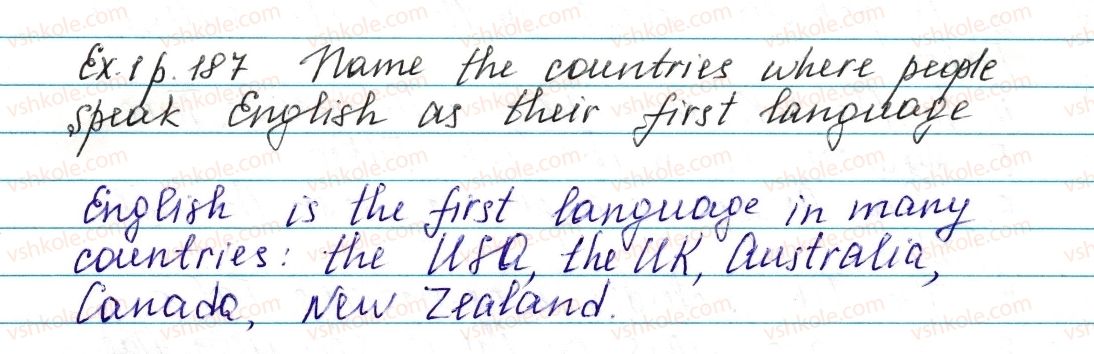 Ex. 1 p. 187 Name the countries where people
speak English as their first language
English is the first language in many
countries: the USA, the UK, Australia,
Canada, New Zealand.